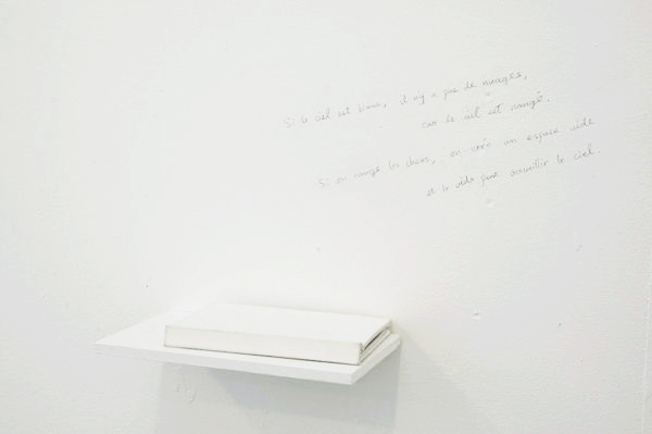 Si le ciel est blanc, il n'y a pas de nuages,
car le ciel est rangé.
Si on range les choses, on crée un espace vide
et le vide peut accueillir le ciel.